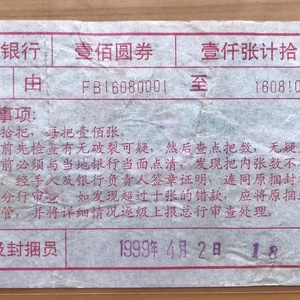 银行 壹佰圆券 壹仟张计拾
由 FB16080001 至 160810
事项:
拾把,每把壹佰张。
前先检查有无破裂可疑,然后查点把数,无疑
前必须与当地银行当面点清,发现把内张数不
,经手人及银行负责人签章证明,连同原捆封
分行审查。如发现超过十张的错款,应将原捆
管,并将详细情况逐级上报总行审查处理。
封捆员 1999年4月2日 18